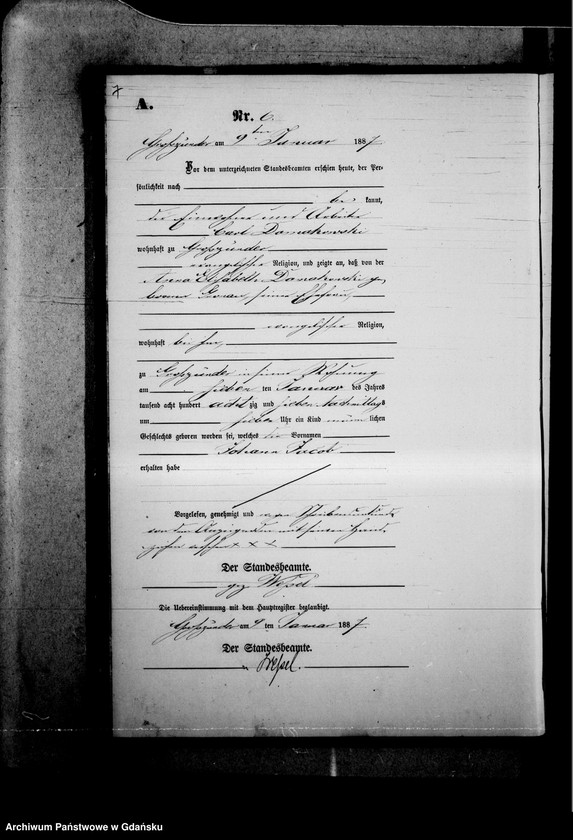 7
A.
Nr. 6.
Großzünder am 9ten Januar 1887
Vor dem unterzeichneten Standesbeamten erschien heute, der Per-
sönlichkeit nach
be kannt,
der Einwohner und Arbeiter
Carl Domakowski
wohnhaft zu Großzünder
evangelischer Religion, und zeigte an, daß von der
Anna Elisabeth Domakowski ge
borenen seiner Ehefrau,
evangelischer Religion,
wohnhaft bei ihm,
zu Großzünder in seiner Wohnung
am sieben ten Januar des Jahres
tausend acht hundert acht zig und sieben Nachmittags
um sieben Uhr ein Kind männ lichen
Geschlechts geboren worden sei, welches die Vornamen
Johann Jacob
erhalten habe
Vorgelesen, genehmigt und wegen Schreibensunkunde
von dem Anzeigenden mit seinem Hand
zeichen versehen x x x
Der Standesbeamte.
gez. Wessel
Die Uebereinstimmung mit dem Hauptregister beglaubigt.
Großzünder am 9 ten Januar 1887
Der Standesbeamte.
Wessel.
Archiwum Państwowe w Gdańsku